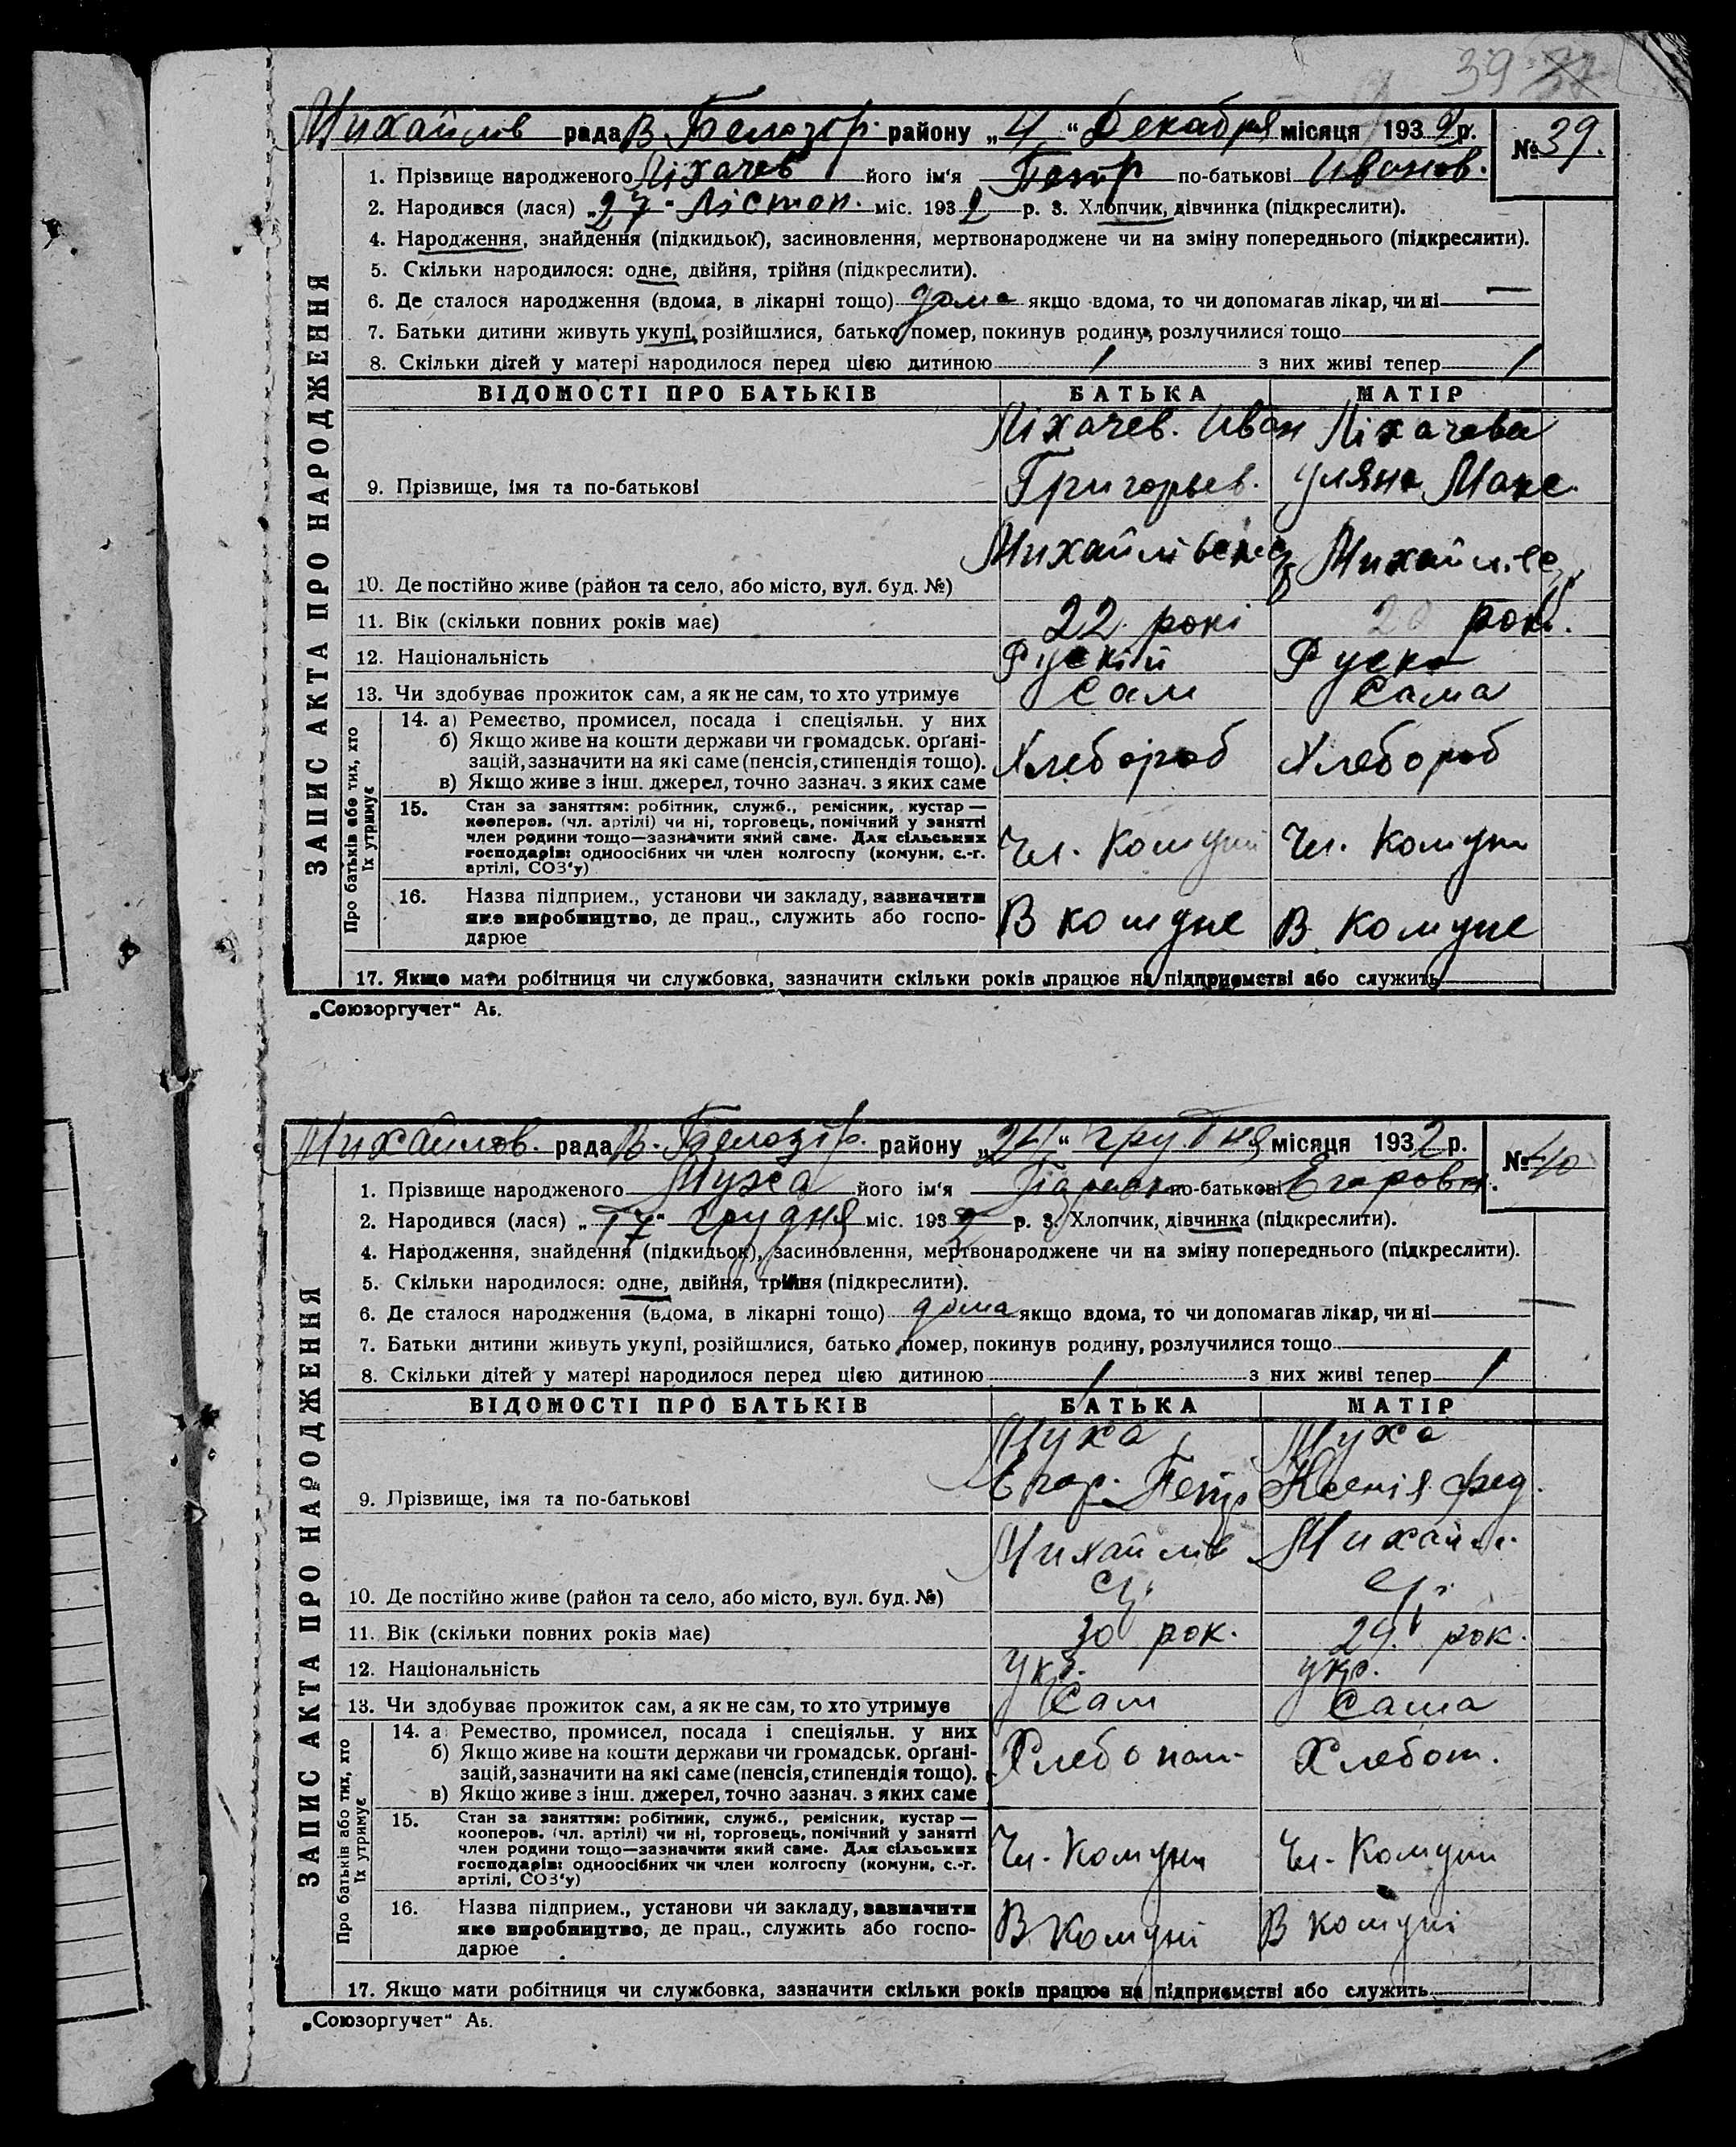 39 37
Михайлов рада В. Белозор. району „4“ Декабря місяця 1932 р. № 39.
1. Прізвище народженого Ліхачев його ім'я Петр по-батькові Иванов.
2. Народився (лася) „27“ Лістоп. міс. 1932 р. 3. Хлопчик, дівчинка (підкреслити).
4. Народження, знайдення (підкидьок), засиновлення, мертвонароджене чи на зміну попереднього (підкреслити).
5. Скільки народилося: одне, двійня, трійня (підкреслити).
6. Де сталося народження (вдома, в лікарні тощо) дома якщо вдома, то чи допомагав лікар, чи ні —
7. Батьки дитини живуть укупі, розійшлися, батько помер, покинув родину, розлучилися тощо
8. Скільки дітей у матері народилося перед цією дитиною 1 з них живі тепер 1
ЗАПИС АКТА ПРО НАРОДЖЕННЯ
ВІДОМОСТІ ПРО БАТЬКІВ БАТЬКА МАТІР
Ліхачев. Иван Ліхачева
9. Прізвище, імя та по-батькові Григорьев. Уляна Макс.
Михайлівка Михайл.
10. Де постійно живе (район та село, або місто, вул. буд. №)
11. Вік (скільки повних років має) 22 рокі 20 рок.
12. Національність Рускій Руска
13. Чи здобуває прожиток сам, а як не сам, то хто утримує Сам Сама
Про батьків або тих, хто їх утримує
14. а) Ремество, промисел, посада і спеціяльн. у них
б) Якщо живе на кошти держави чи громадськ. орґані-
зацій, зазначити на які саме (пенсія, стипендія тощо). Хлебороб Хлебороб
в) Якщо живе з інш. джерел, точно зазнач. з яких саме
15. Стан за заняттям: робітник, служб., ремісник, кустар —
кооперов. (чл. артілі) чи ні, торговець, помічний у занятті
член родини тощо—зазначити який саме. Для сільських
господарів: одноосібних чи член колгоспу (комуни, с.-г. Чл. Комуни Чл. Комуни
артілі, СОЗ'у)
16. Назва підприєм., установи чи закладу, зазначити
яке виробництво, де прац., служить або госпо- В комуне В комуне
дарює
17. Якщо мати робітниця чи службовка, зазначити скільки років працює на підприємстві або служить
„Союзоргучет“ Аь.
Михайлов. рада В. Белозір. району „24“ грудня місяця 1932 р. № 40
1. Прізвище народженого Муха його ім'я по-батькові Егоровн.
2. Народився (лася) „17“ грудня міс. 1932 р. 3. Хлопчик, дівчинка (підкреслити).
4. Народження, знайдення (підкидьок), засиновлення, мертвонароджене чи на зміну попереднього (підкреслити).
5. Скільки народилося: одне, двійня, трійня (підкреслити).
6. Де сталося народження (вдома, в лікарні тощо) дома якщо вдома, то чи допомагав лікар, чи ні —
7. Батьки дитини живуть укупі, розійшлися, батько помер, покинув родину, розлучилися тощо
8. Скільки дітей у матері народилося перед цією дитиною 1 з них живі тепер 1
ЗАПИС АКТА ПРО НАРОДЖЕННЯ
ВІДОМОСТІ ПРО БАТЬКІВ БАТЬКА МАТІР
Муха Муха
9. Прізвище, імя та по-батькові Егор. Петр. Ксенія Фед.
Михайлів Михайл.
10. Де постійно живе (район та село, або місто, вул. буд. №)
11. Вік (скільки повних років має) 30 рок. 29 рок.
12. Національність Укр. Укр.
13. Чи здобуває прожиток сам, а як не сам, то хто утримує Сам Сама
Про батьків або тих, хто їх утримує
14. а Ремество, промисел, посада і спеціяльн. у них
б) Якщо живе на кошти держави чи громадськ. орґані-
зацій, зазначити на які саме (пенсія, стипендія тощо). Хлебопаш. Хлебоп.
в) Якщо живе з інш. джерел, точно зазнач. з яких саме
15. Стан за заняттям: робітник, служб., ремісник, кустар —
кооперов. (чл. артілі) чи ні, торговець, помічний у занятті
член родини тощо—зазначити який саме. Для сільських
господарів: одноосібних чи член колгоспу (комуни, с.-г. Чл. Комуни Чл. Комуни
артілі, СОЗ'у)
16. Назва підприєм., установи чи закладу, зазначити
яке виробництво, де прац., служить або госпо- В Комуні В комуні
дарює
17. Якщо мати робітниця чи службовка, зазначити скільки років працює на підприємстві або служить
„Союзоргучет“ Аь.